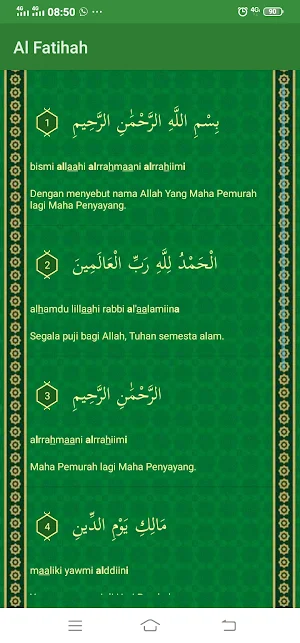 08:50
4G
90
Al Fatihah
1
بِسْمِ اللَّهِ الرَّحْمَٰنِ الرَّحِيمِ
bismi allaahi alrrahmaani alrrahiimi
Dengan menyebut nama Allah Yang Maha Pemurah
lagi Maha Penyayang.
2
الْحَمْدُ لِلَّهِ رَبِّ الْعَالَمِينَ
alhamdu lillaahi rabbi al'aalamiina
Segala puji bagi Allah, Tuhan semesta alam.
3
الرَّحْمَٰنِ الرَّحِيمِ
alrrahmaani alrrahiimi
Maha Pemurah lagi Maha Penyayang.
4
مَالِكِ يَوْمِ الدِّينِ
maaliki yawmi alddiini